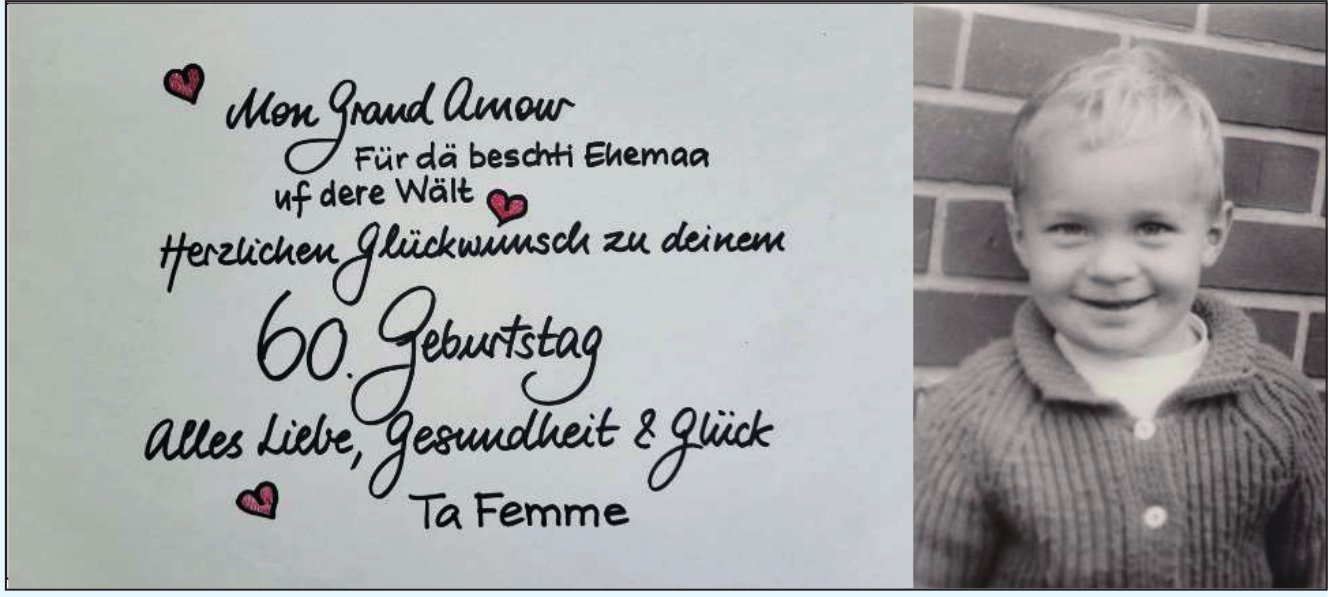 Mon Grand Amour
Für dä beschti Ehemaa
uf dere Wält
Herzlichen Glückwunsch zu deinem
60. Geburtstag
Alles Liebe, Gesundheit & Glück
Ta Femme